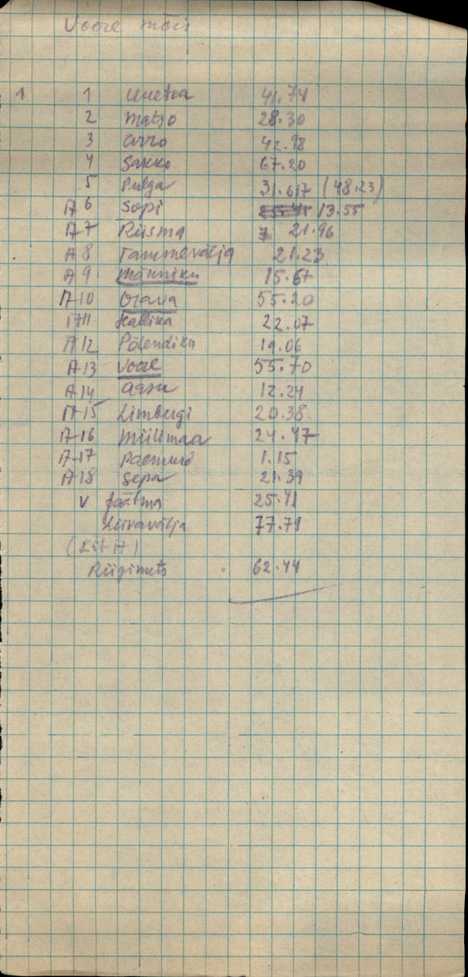 Voore mõis
1 1 Uuetoa 41.74
2 Matso 28.30
3 Arro 42.98
4 Sakko 67.20
5 Pulga 31.617 (48.23)
A 6 Sopi 13.55
A 7 Riisma 21.96
A 8 Tammevälja 21.23
A 9 Männiku 15.67
A 10 Otava 55.20
A 11 Kallika 22.07
A 12 Põlendiku 19.06
A 13 Voore 55.70
A 14 12.24
A 15 Limbergi 20.38
A 16 Müürimaa 24.47
A 17 1.15
A 18 Sepa 21.39
V Jaätma 25.41
77.71
Riigimets 62.44